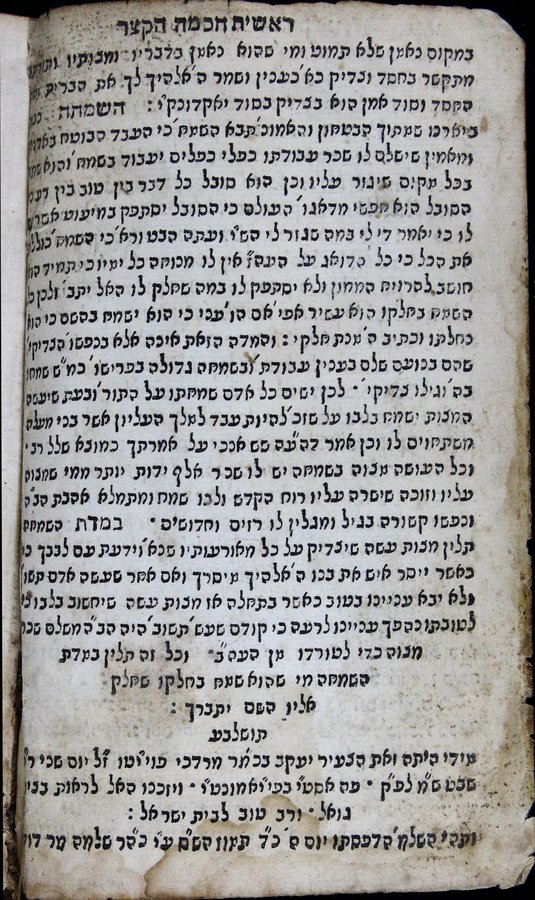 ראשית חכמה הקצר
במקום נאמן שלא תמוט ומי שהוא נאמן בדבריו
מתקשר בחסד וצדיק כא׳ כענין ושמר ה׳ אלהיך לך את הברית
החסד וסוד אמן הוא בצדיק בסוד השמחה
ביארנו שמתוך הבטחון והאמונ׳ תבא השמח׳ כי העבד הבוטח
ומאמין שישלם לו שכר עבודתו כפלי כפלים יעבוד בשמח׳ והוא
בכל מקום שיגור עליו וכן הוא סובל כל דבר בין טוב בין
הסובל הוא חפשי מדאגו׳ העולם כי הסובל יסתפק במיעוט
לו כי יאמר די לי במה שגזר לי הש״י ועתה כי השמח׳
את הכל כי כל הדואג על העה״ז אין לו מנוחה כל ימיו כי תמיד
חושב להרויח הממון ולא יסתפק לו במה שחלק לו האל יתב׳ ולכן
השמח בחלקו הוא עשיר אפי׳ אם הו׳ עני כי הוא ישמח בהשם כי
נחלתו וכתיב ה׳ מנת חלקי : והמדה הזאת אינה אלא בנפשו׳ הצדיקי׳
שהם בנועם שלם בענין עבודת׳ ובשמחה גדולה בפרישו׳ כמ״ש שמחו
בה׳ וגילו צדיקי׳ לכן ישים כל אדם שמחתו על התור׳ ובעת שיעשה
המצות ישמח בלבו על שזכ׳ להיות עבד למלך העליון אשר בני מעלה
משתחוים לו וכן אמר דה״עה שש אנכי על אמרתך כמוצא שלל רב
וכל העושה מצוה בשמחה יש לו שכר אלף ידות יותר ממי שמצוה
עליו וזוכה שישרה עליו רוח הקדש ולבו שמח ומתמלא אהבת הב״ה
ונפשו קשורה בגיל ומגלין לו רזים וחדושים במדת השמחה
תלין מצות עשה שיצדיק על כל מאורעותיו שנא׳ וידעת עם לבבך כי
כאשר ייסר איש את בנו ה׳ אלהיך מיסרך ואם אחר שעשה אדם תשו׳
ולא יבא עניינו בטוב כאשר בתחלה אז מצות עשה שיחשוב בלבו כי
לטובתו נהפך עניינו לרעה כי קודם שעש׳ תשוב׳ היה הב״ה משלם שכר
מצוה כדי לטורדו מן העה״ב וכל זה תלין במדת
השמחה מי שהוא שמח בחלקו שחלק
אליו השם יתברך :
תושלבע
מידי היתה זאת הצעיר יעקב בכ״מר מרדכי ז״ל יום שני
שבט ש״מ לפ״ק פה אסטי ויזכנו האל לראות
גואל ורב טוב לבית ישראל :
ותהי השלמ׳ הדפסתו יום כ״ד תמוז הש״ם ע״י כ״הר שלמה